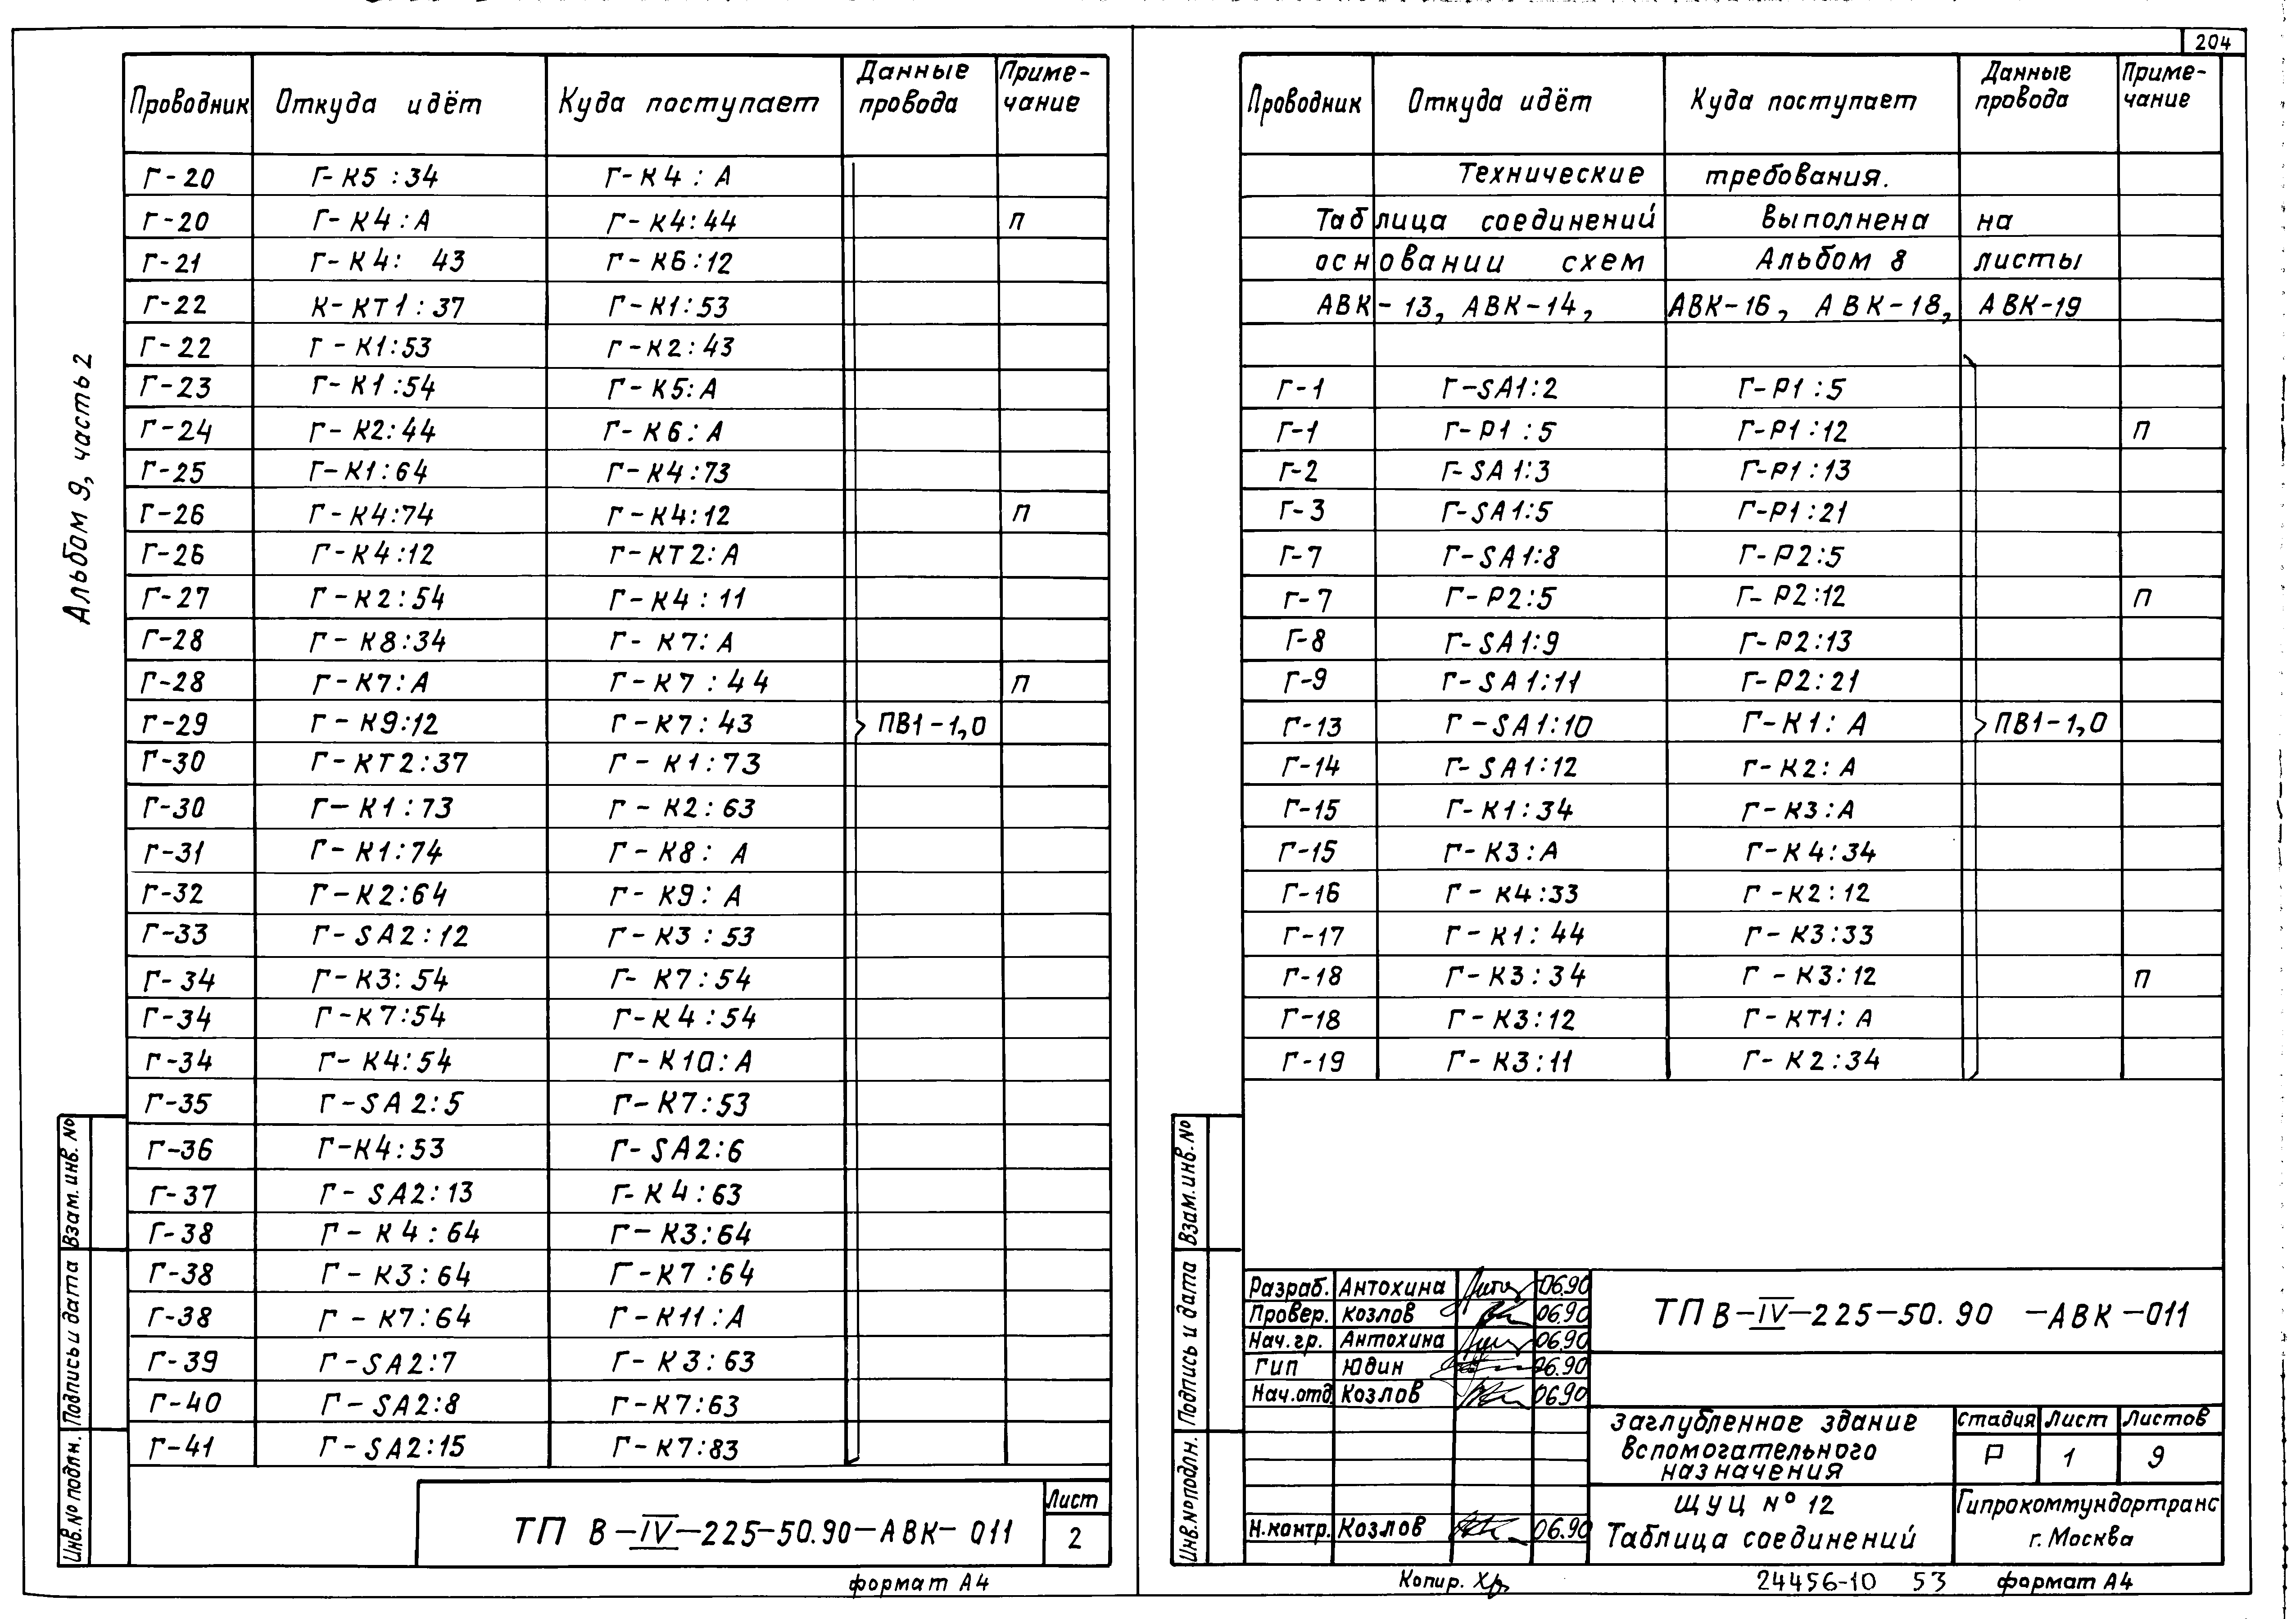 204
Альбом 9, часть 2
Проводник Откуда идёт Куда поступает Данные провода Приме-чание
Г-20 Г-К5:34 Г-К4:А
Г-20 Г-К4:А Г-К4:44 П
Г-21 Г-К4: 43 Г-К6:12
Г-22 К-КТ1:37 Г-К1:53
Г-22 Г-К1:53 Г-К2:43
Г-23 Г-К1:54 Г-К5:А
Г-24 Г-К2:44 Г-К6:А
Г-25 Г-К1:64 Г-К4:73
Г-26 Г-К4:74 Г-К4:12 П
Г-26 Г-К4:12 Г-КТ2:А
Г-27 Г-К2:54 Г-К4:11
Г-28 Г-К8:34 Г-К7:А
Г-28 Г-К7:А Г-К7:44 П
Г-29 Г-К9:12 Г-К7:43 ПВ1-1,0
Г-30 Г-КТ2:37 Г-К1:73
Г-30 Г-К1:73 Г-К2:63
Г-31 Г-К1:74 Г-К8: А
Г-32 Г-К2:64 Г-К9: А
Г-33 Г-SA2:12 Г-К3:53
Г-34 Г-К3:54 Г-К7:54
Г-34 Г-К7:54 Г-К4:54
Г-34 Г-К4:54 Г-К10:А
Г-35 Г-SA2:5 Г-К7:53
Г-36 Г-К4:53 Г-SA2:6
Г-37 Г-SA2:13 Г-К4:63
Г-38 Г-К4:64 Г-К3:64
Г-38 Г-К3:64 Г-К7:64
Г-38 Г-К7:64 Г-К11:А
Г-39 Г-SA2:7 Г-К3:63
Г-40 Г-SA2:8 Г-К7:63
Г-41 Г-SA2:15 Г-К7:83
Взам. инв. №
Подпись и дата
Инв. № подлн.
ТП В-IV-225-50.90-АВК-011
Лист
2
формат А4
Проводник Откуда идёт Куда поступает Данные провода Приме-чание
Технические требования.
Таблица соединений выполнена на
основании схем Альбом 8 листы
АВК-13, АВК-14, АВК-16, АВК-18, АВК-19
Г-1 Г-SA1:2 Г-Р1:5
Г-1 Г-Р1:5 Г-Р1:12 П
Г-2 Г-SA1:3 Г-Р1:13
Г-3 Г-SA1:5 Г-Р1:21
Г-7 Г-SA1:8 Г-Р2:5
Г-7 Г-Р2:5 Г-Р2:12 П
Г-8 Г-SA1:9 Г-Р2:13
Г-9 Г-SA1:11 Г-Р2:21
Г-13 Г-SA1:10 Г-К1: А ПВ1-1,0
Г-14 Г-SA1:12 Г-К2: А
Г-15 Г-К1:34 Г-К3:А
Г-15 Г-К3:А Г-К4:34
Г-16 Г-К4:33 Г-К2:12
Г-17 Г-К1:44 Г-К3:33
Г-18 Г-К3:34 Г-К3:12 П
Г-18 Г-К3:12 Г-КТ1: А
Г-19 Г-К3:11 Г-К2:34
Взам. инв. №
Подпись и дата
Инв. № подлн.
Разраб. Антохина 06.90
Провер. Козлов 06.90
Нач. гр. Антохина 06.90
Гип Юдин 06.90
Нач. отд. Козлов 06.90
Н. контр. Козлов 06.90
ТП В-IV-225-50.90 -АВК-011
Заглубленное здание
вспомогательного
назначения
Стадия Лист Листов
Р 1 9
ЩУЦ №12
Таблица соединений
Гипрокоммундортранс
г. Москва
Копир.
24456-10 53 формат А4